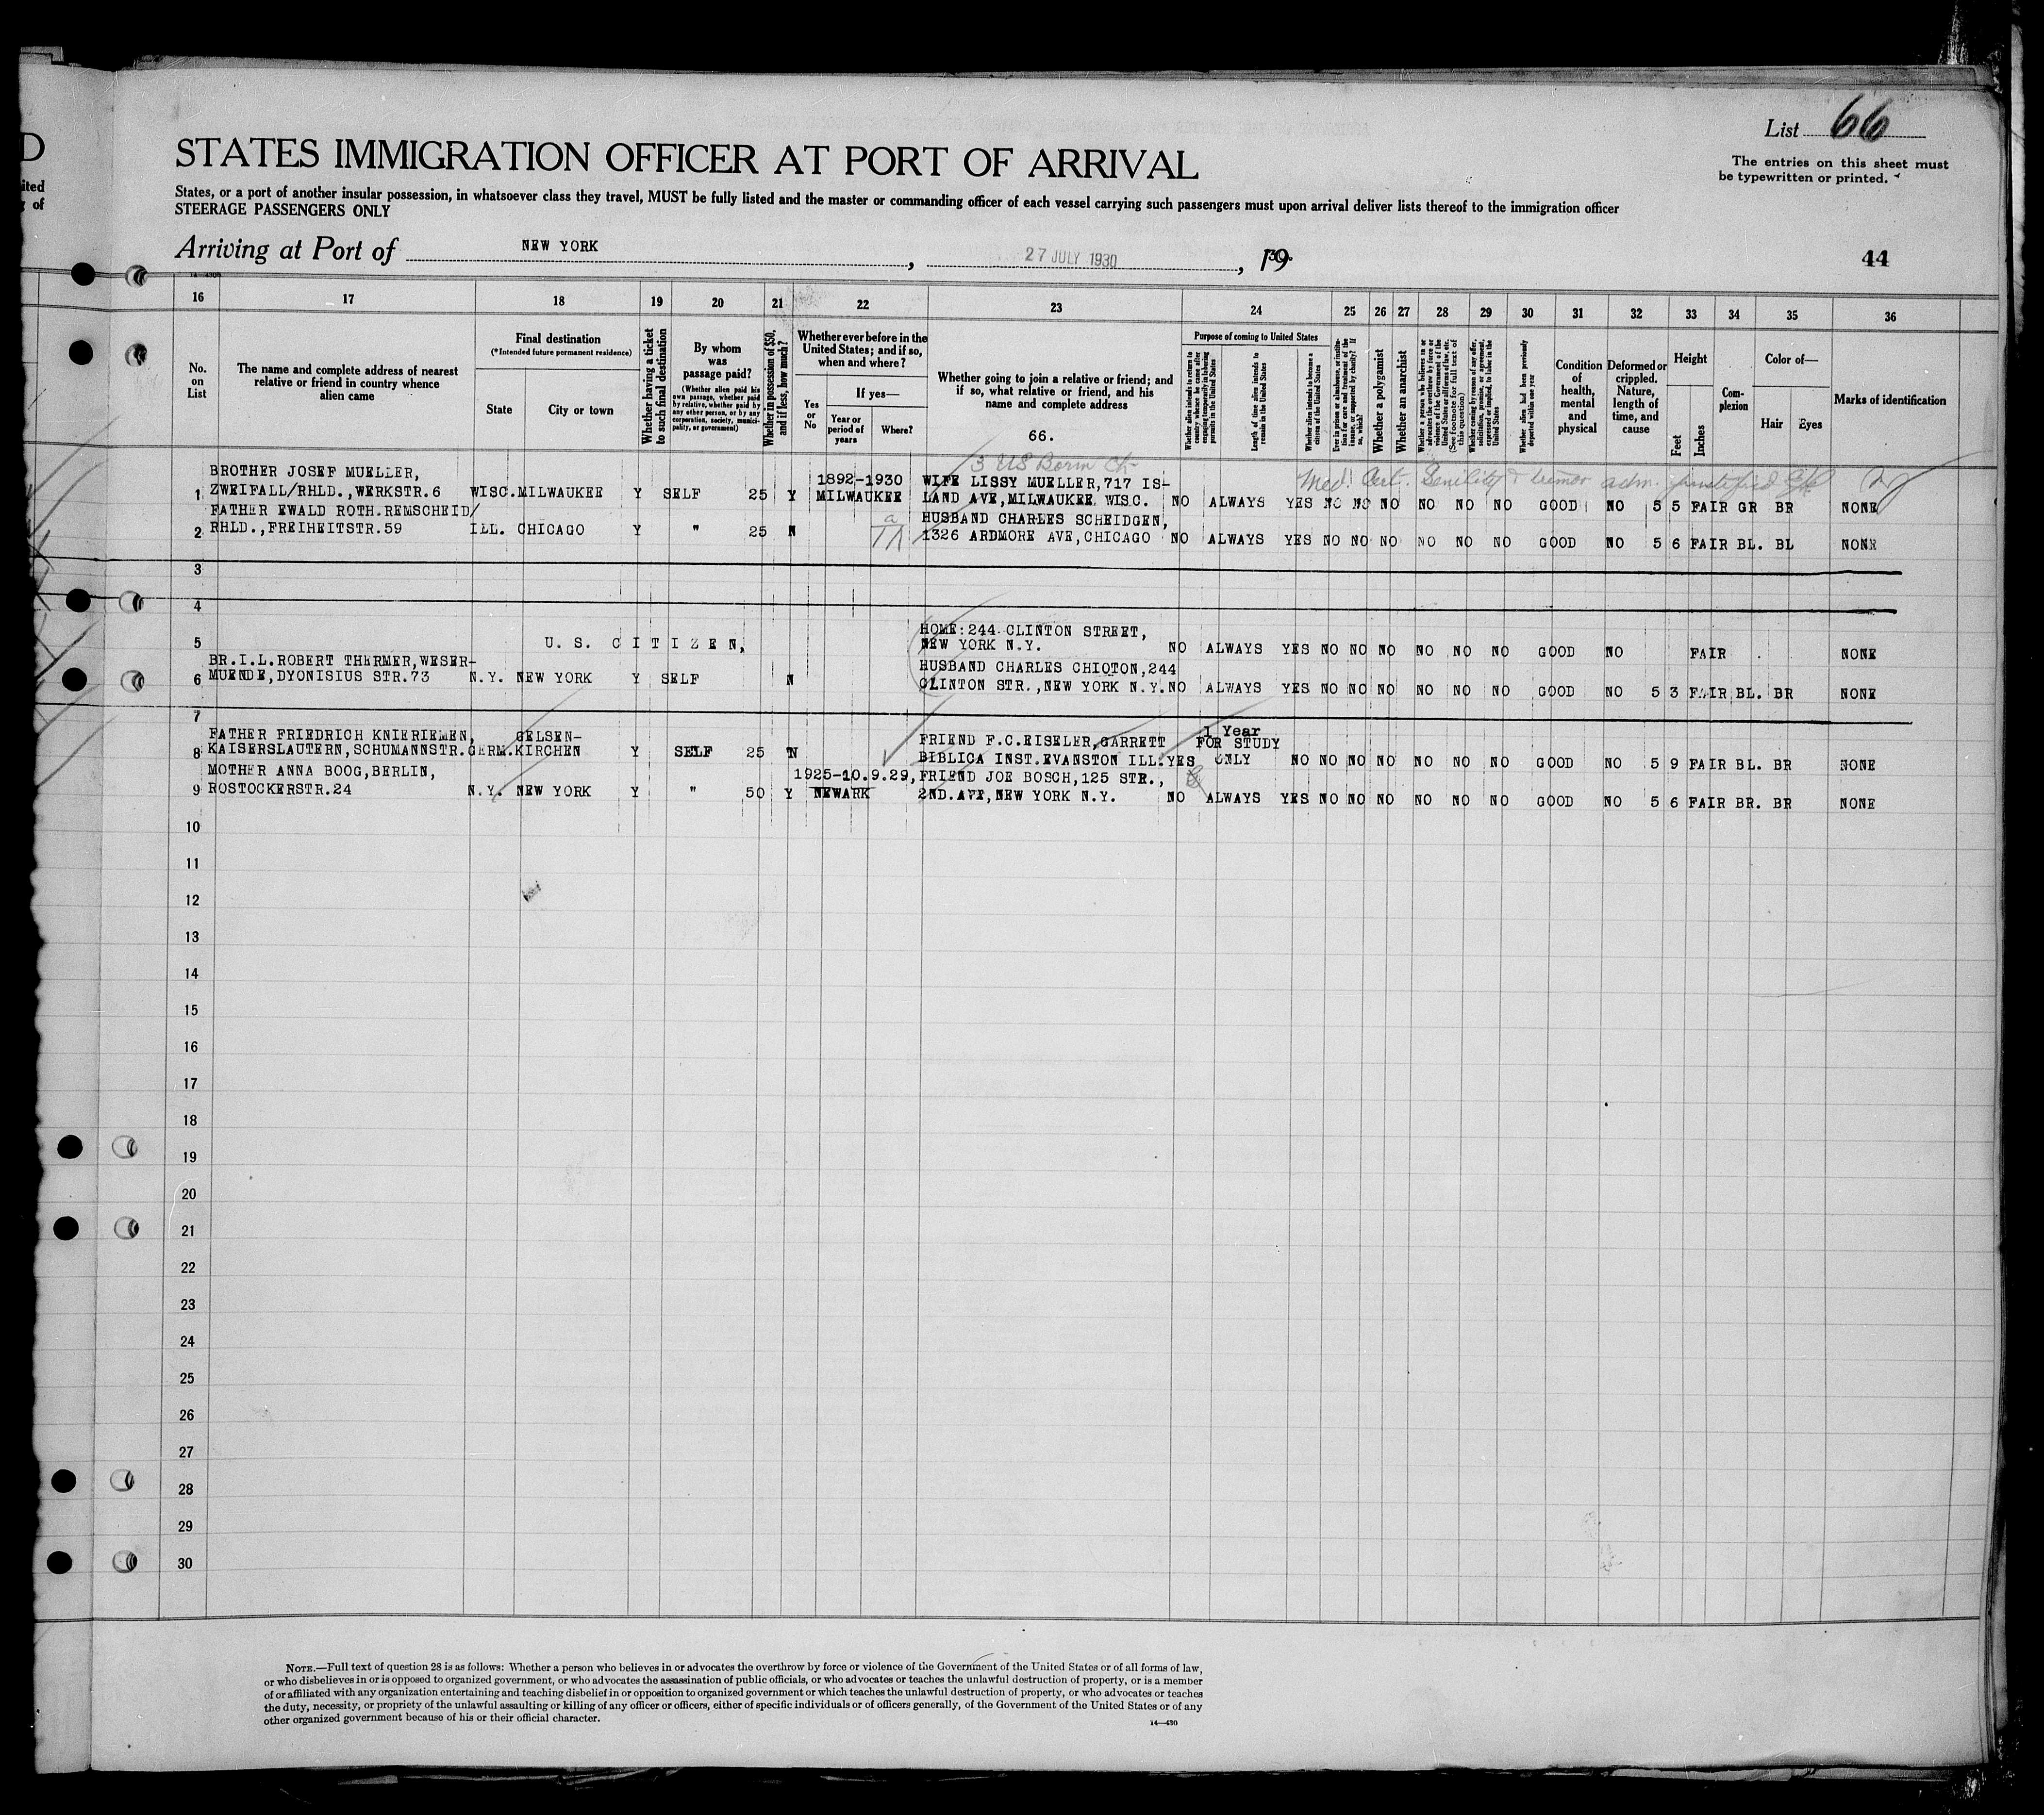 D
ited
of
List 66
The entries on this sheet must
be typewritten or printed.
STATES IMMIGRATION OFFICER AT PORT OF ARRIVAL
States, or a port of another insular possession, in whatsoever class they travel, MUST be fully listed and the master or commanding officer of each vessel carrying such passengers must upon arrival deliver lists thereof to the immigration officer
STEERAGE PASSENGERS ONLY
Arriving at Port of NEW YORK, 27 JULY 1930, 1930. 44
14-430
16 17 18 19 20 21 22 23 24 25 26 27 28 29 30 31 32 33 34 35 36
No. on List
The name and complete address of nearest relative or friend in country whence alien came
Final destination
(*Intended future permanent residence)
State
City or town
Whether having a ticket to such final destination
By whom was passage paid?
(Whether alien paid his own passage, whether paid by relative, whether paid by any other person, or by any corporation, society, municipality, or government)
Whether in possession of $50, and if less, how much?
Whether ever before in the United States; and if so, when and where?
Yes or No
If yes—
Year or period of years
Where?
Whether going to join a relative or friend; and if so, what relative or friend, and his name and complete address
66.
Purpose of coming to United States
Whether alien intends to return to country whence he came after engaging temporarily in laboring pursuits in the United States
Length of time alien intends to remain in the United States
Whether alien intends to become a citizen of the United States
Ever in prison or almshouse, or institution for care and treatment of the insane, or supported by charity? If so, which?
Whether a polygamist
Whether an anarchist
Whether a person who believes in or advocates the overthrow by force or violence of the Government of the United States or all forms of law, etc. (See footnote for full text of this question)
Whether coming by reason of any offer, solicitation, promise, or agreement, expressed or implied, to labor in the United States
Whether alien had been previously deported within one year
Condition of health, mental and physical
Deformed or crippled. Nature, length of time, and cause
Height
Feet
Inches
Complexion
Color of—
Hair
Eyes
Marks of identification
3 US Born Ch
Med. Cert. Senility & tremor adm.
BROTHER JOSEF MUELLER, 1892-1930 WIFE LISSY MUELLER,717 IS-
1 ZWEIFALL/RHLD.,WERKSTR.6 WISC. MILWAUKEE Y SELF 25 Y MILWAUKEE LAND AVE,MILWAUKEE WISC. NO ALWAYS YES NO NO NO NO NO NO GOOD NO 5 5 FAIR GR BR NONE
FATHER EWALD ROTH.REMSCHEID/ HUSBAND CHARLES SCHEIDGEN,
2 RHLD.,FREIHEITSTR.59 ILL. CHICAGO Y " 25 N 1326 ARDMORE AVE,CHICAGO NO ALWAYS YES NO NO NO NO NO NO GOOD NO 5 6 FAIR BL. BL NONE
3
4
HOME:244 CLINTON STREET,
5 U. S. CITIZEN, NEW YORK N.Y. NO ALWAYS YES NO NO NO NO NO NO GOOD NO FAIR NONE
BR.I.L.ROBERT THERMER,WESER- HUSBAND CHARLES CHIOTON,244
6 MUENDE,DYONISIUS STR.73 N.Y. NEW YORK Y SELF N CLINTON STR.,NEW YORK N.Y. NO ALWAYS YES NO NO NO NO NO NO GOOD NO 5 3 FAIR BL. BR NONE
7
FATHER FRIEDRICH KNIERIEMEN, GELSEN- FRIEND F.C.EISELER,GARRETT 1 Year FOR STUDY
8 KAISERSLAUTERN,SCHUMANNSTR. GERM. KIRCHEN Y SELF 25 N BIBLICA INST.EVANSTON ILL. YES ONLY NO NO NO NO NO NO NO GOOD NO 5 9 FAIR BL. BR NONE
MOTHER ANNA BOOG,BERLIN, 1925-10.9.29, FRIEND JOE BOSCH,125 STR.,
9 ROSTOCKERSTR.24 N.Y. NEW YORK Y " 50 Y NEWARK 2ND.AVE,NEW YORK N.Y. NO ALWAYS YES NO NO NO NO NO NO GOOD NO 5 6 FAIR BR. BR NONE
10
11
12
13
14
15
16
17
18
19
20
21
22
23
24
25
26
27
28
29
30
NOTE.—Full text of question 28 is as follows: Whether a person who believes in or advocates the overthrow by force or violence of the Government of the United States or of all forms of law,
or who disbelieves in or is opposed to organized government, or who advocates the assassination of public officials, or who advocates or teaches the unlawful destruction of property, or is a member
of or affiliated with any organization entertaining and teaching disbelief in or opposition to organized government or which teaches the unlawful destruction of property, or who advocates or teaches
the duty, necessity, or propriety of the unlawful assaulting or killing of any officer or officers, either of specific individuals or of officers generally, of the Government of the United States or of any
other organized government because of his or their official character.
14—430